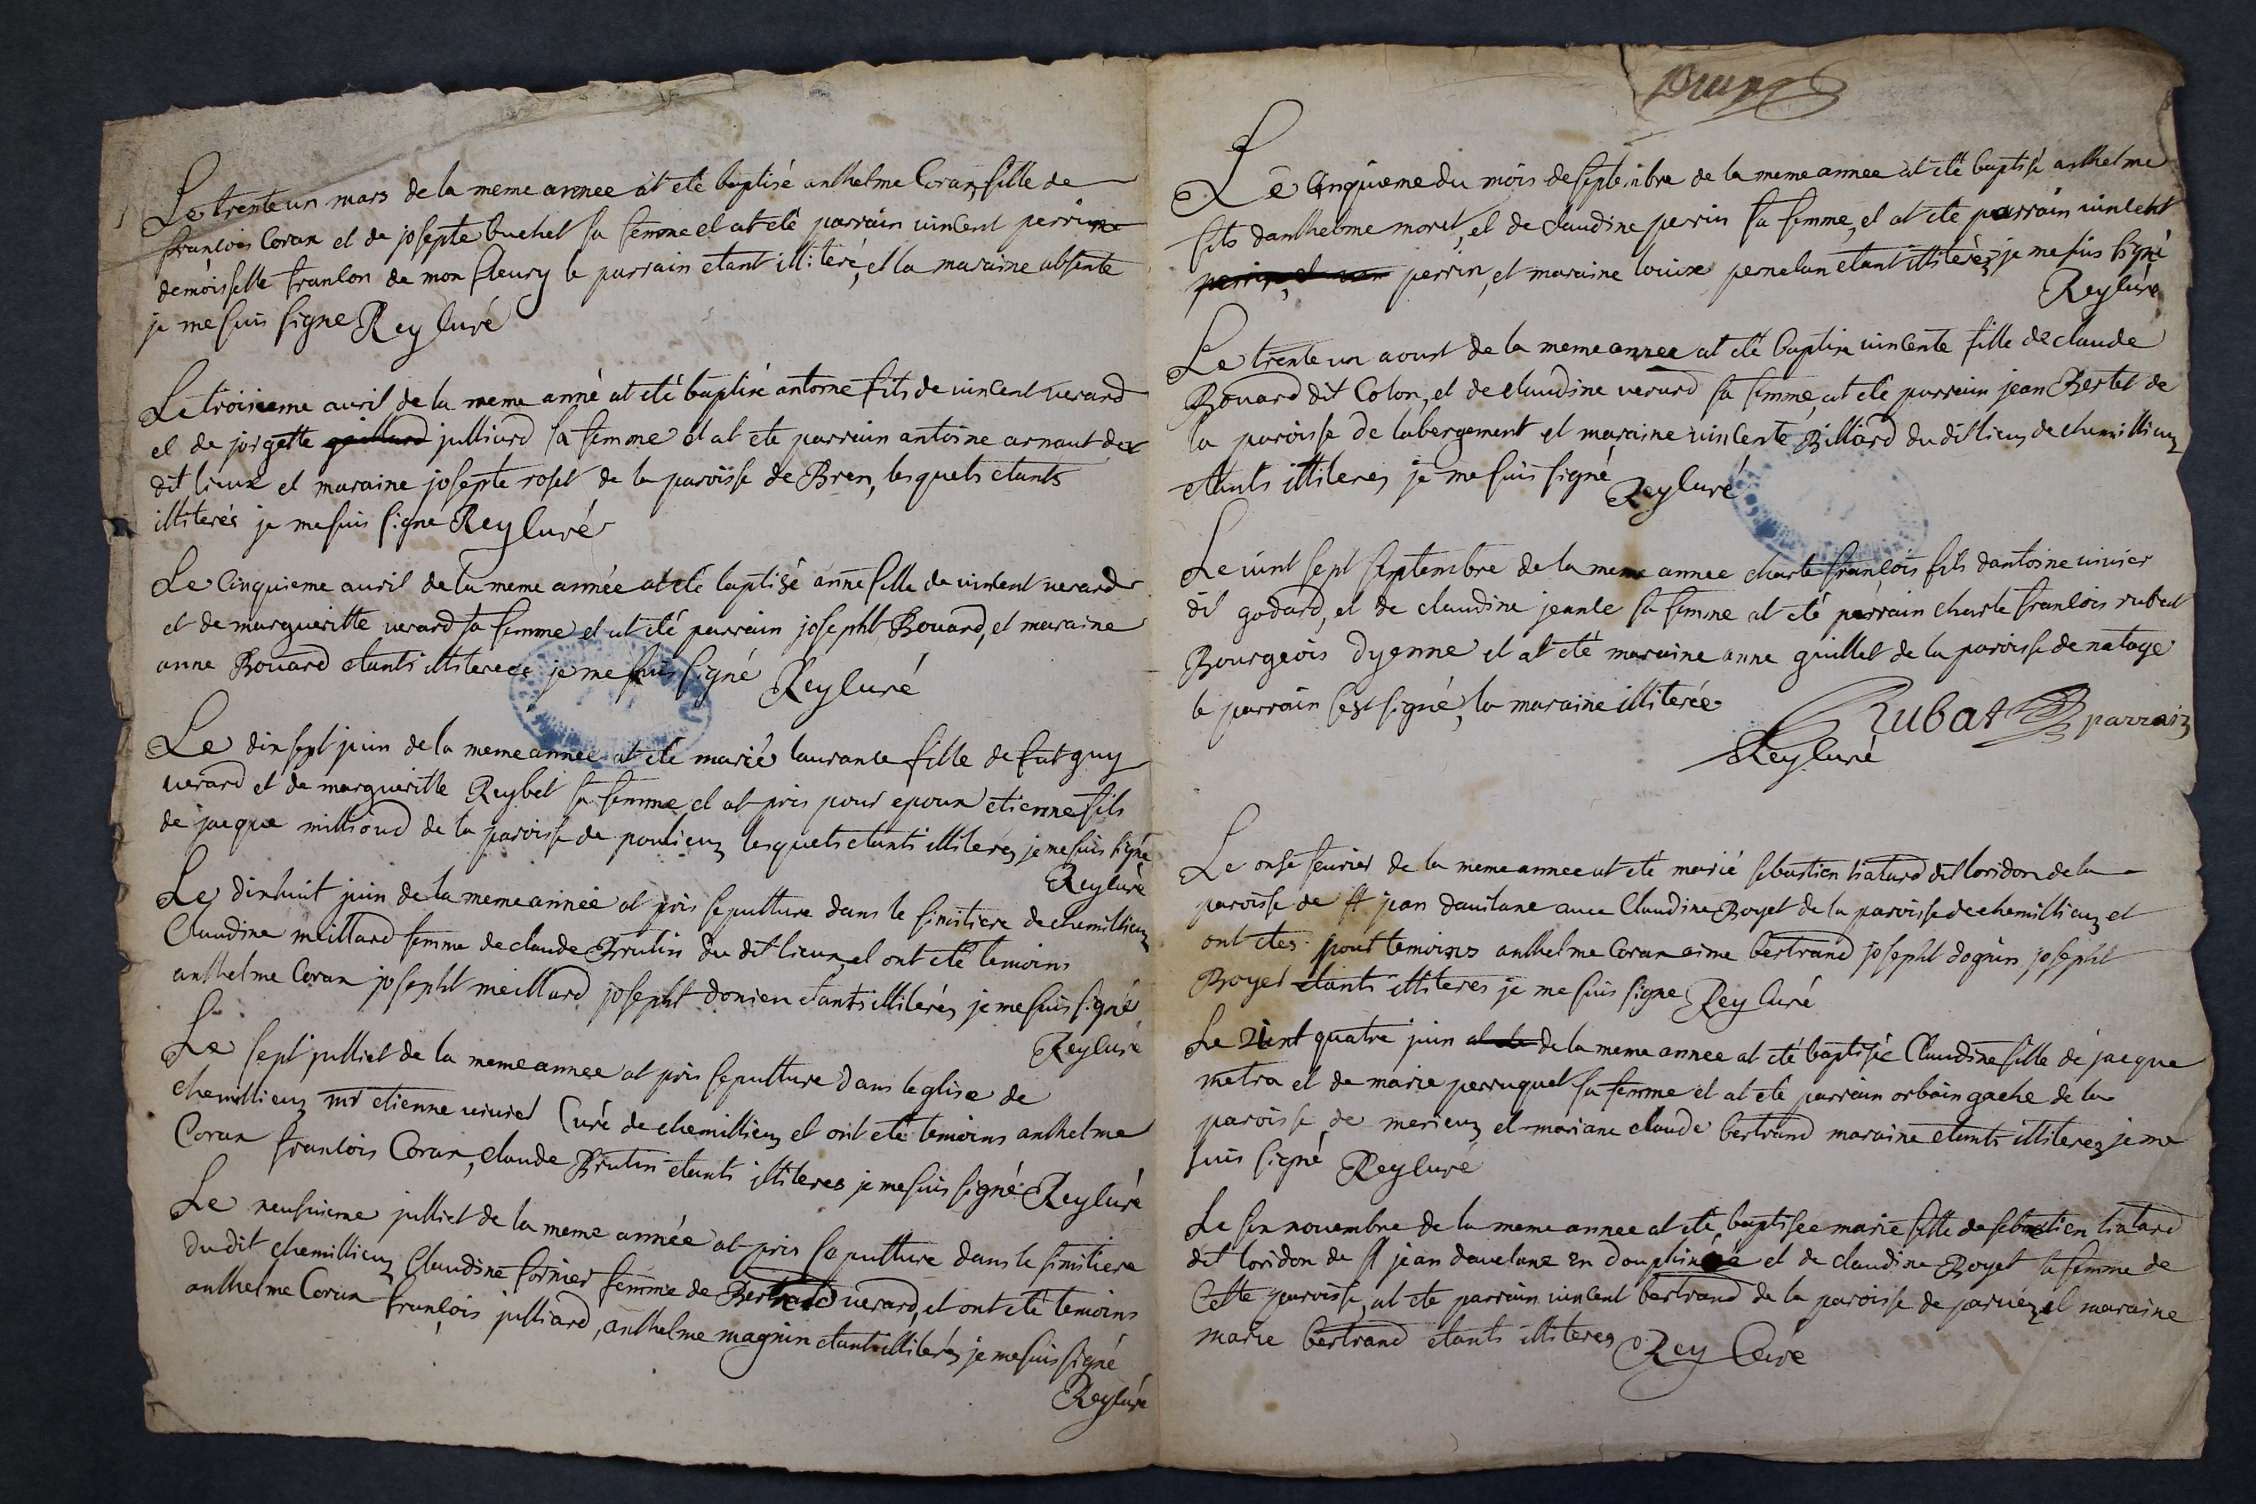 Le trente un mars de la meme annee at eté baptisé anthelme Coran, fille de
francois Coran et de josepte buchet sa femme et at eté parrain vincent perrin
demoisselle franson de mon fleury le parrain etant illiteré, et la maraine absente
je me suis signe Rey Curé
Le troisieme avril de la meme anné at eté baptisé antoine fils de vincent verard
et de jorgette julliard sa femme et at ete parrain antoine arnaut du
dit lieux et maraine josepte roset de la paroisse de Bren, lesquels etants
illiterés je me suis signé Rey Curé
Le Cinquieme avril de la meme année at eté baptisé anne fille de vincent verard
et de margueritte verard sa femme et at eté parrain josepht Bouard, et maraine
anne Bouard etants illiterees je me suis signé Rey Curé
Le dix sept juin de la meme annee at eté marié laurance fille de fut guy
verard et de margueritte Reybet sa femme et at pris pour epoux etienne fils
de jacque millioud de la paroisse de poulieuz lesquels etants illiterés je me suis signé
Rey Curé
Le dixhuit juin de la meme annéé at pris sepulture dans le simitiere de chemillieuz
Claudine meillard femme de claude Brutin du dit lieux, et ont eté temoins
anthelme Coran josepht meillard josepht donien etants illiterés je me suis signé
Rey Curé
Le sept julliet de la meme annee at pris sepulture dans leglise de
chemillieuz mr etienne vivier Curé de chemillieuz et ont eté temoins anthelme
Coran francois Coran, claude Brutin etants illiteres je me suis signé Rey Curé
Le neufvieme julliet de la meme année at pris sepulture dans le simitiere
dudit chemillieuz Claudine fornier femme de Bertrand verard, et ont eté temoins
anthelme Coran françois julliard, anthelme magnin etants illiterés je me suis signé
Rey Curé
Le Cinquieme du mois de septembre de la meme annee at eté baptisé anthelme
fils danthelme moret, et de claudine perrin sa femme, et at ete parrain vincent
perrin, et maraine louise pernelan etant illiteréz je me suis signé
Rey Curé
Le trente un aoust de la meme annee at eté baptisé vincente fille de claude
Bouard dit Colon, et de claudine verard sa femme, at eté parrain jean Bertet de
la paroisse de labergement et maraine vincente Billiard du dit lieuz de chemillieuz
etants illiterez je me suis signé Rey Curé
Le vint sept septembre de la meme annee charle françois fils dantoine vivier
dit godard, et de claudine jeante sa femme at eté parrain charle francois rubat
Bourgeois dyenne et at eté maraine anne guillet de la paroisse de natage
le parrain sest signé, la maraine illiterée
Rubat parrain
Rey Curé
Le onse fevrier de la meme annee at eté marié sebastien liatard dit loridon de la
paroisse de st jean davilane avec Claudine Boyet de la paroisse de chemillieuz et
ont etes pour temoins anthelme Coran aime bertrand josepht doguin josepht
Boyet etants illiteres je me suis signe Rey Curé
Le vint quatre juin de la meme annee at eté baptisée Claudine fille de jacque
metra et de marie perruquet sa femme et at ete parrain orbain gache de la
paroisse de merieuz et mariane claude bertrand maraine etants illiterez je me
suis signé Rey Curé
Le sin novembre de la meme annee at eté baptisee marie fille de sebastien liatard
dit loridon de st jean davelane en douphinée et de claudine Boyet sa femme de
Cette paroisse, at ete parrain vincent bertrand de la paroisse de parvéz et maraine
marie bertrand etants illiterez Rey Cure